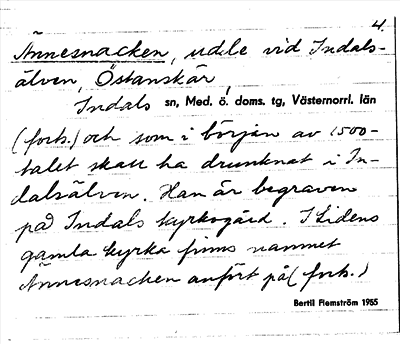 4.
Ånnesnacken, udde vid Indals-
älven, Östanskär,
Indals sn, Med. ö. doms. tg, Västernorrl. län
(forts.) och som i början av 1500-
talet skall ha drunknat i In-
dalsälven. Han är begraven
på Indals kyrkogård. I Lidens
gamla kyrka finns namnet
Ånnesnacken anfört på (forts.)
Bertil Flemström 1955